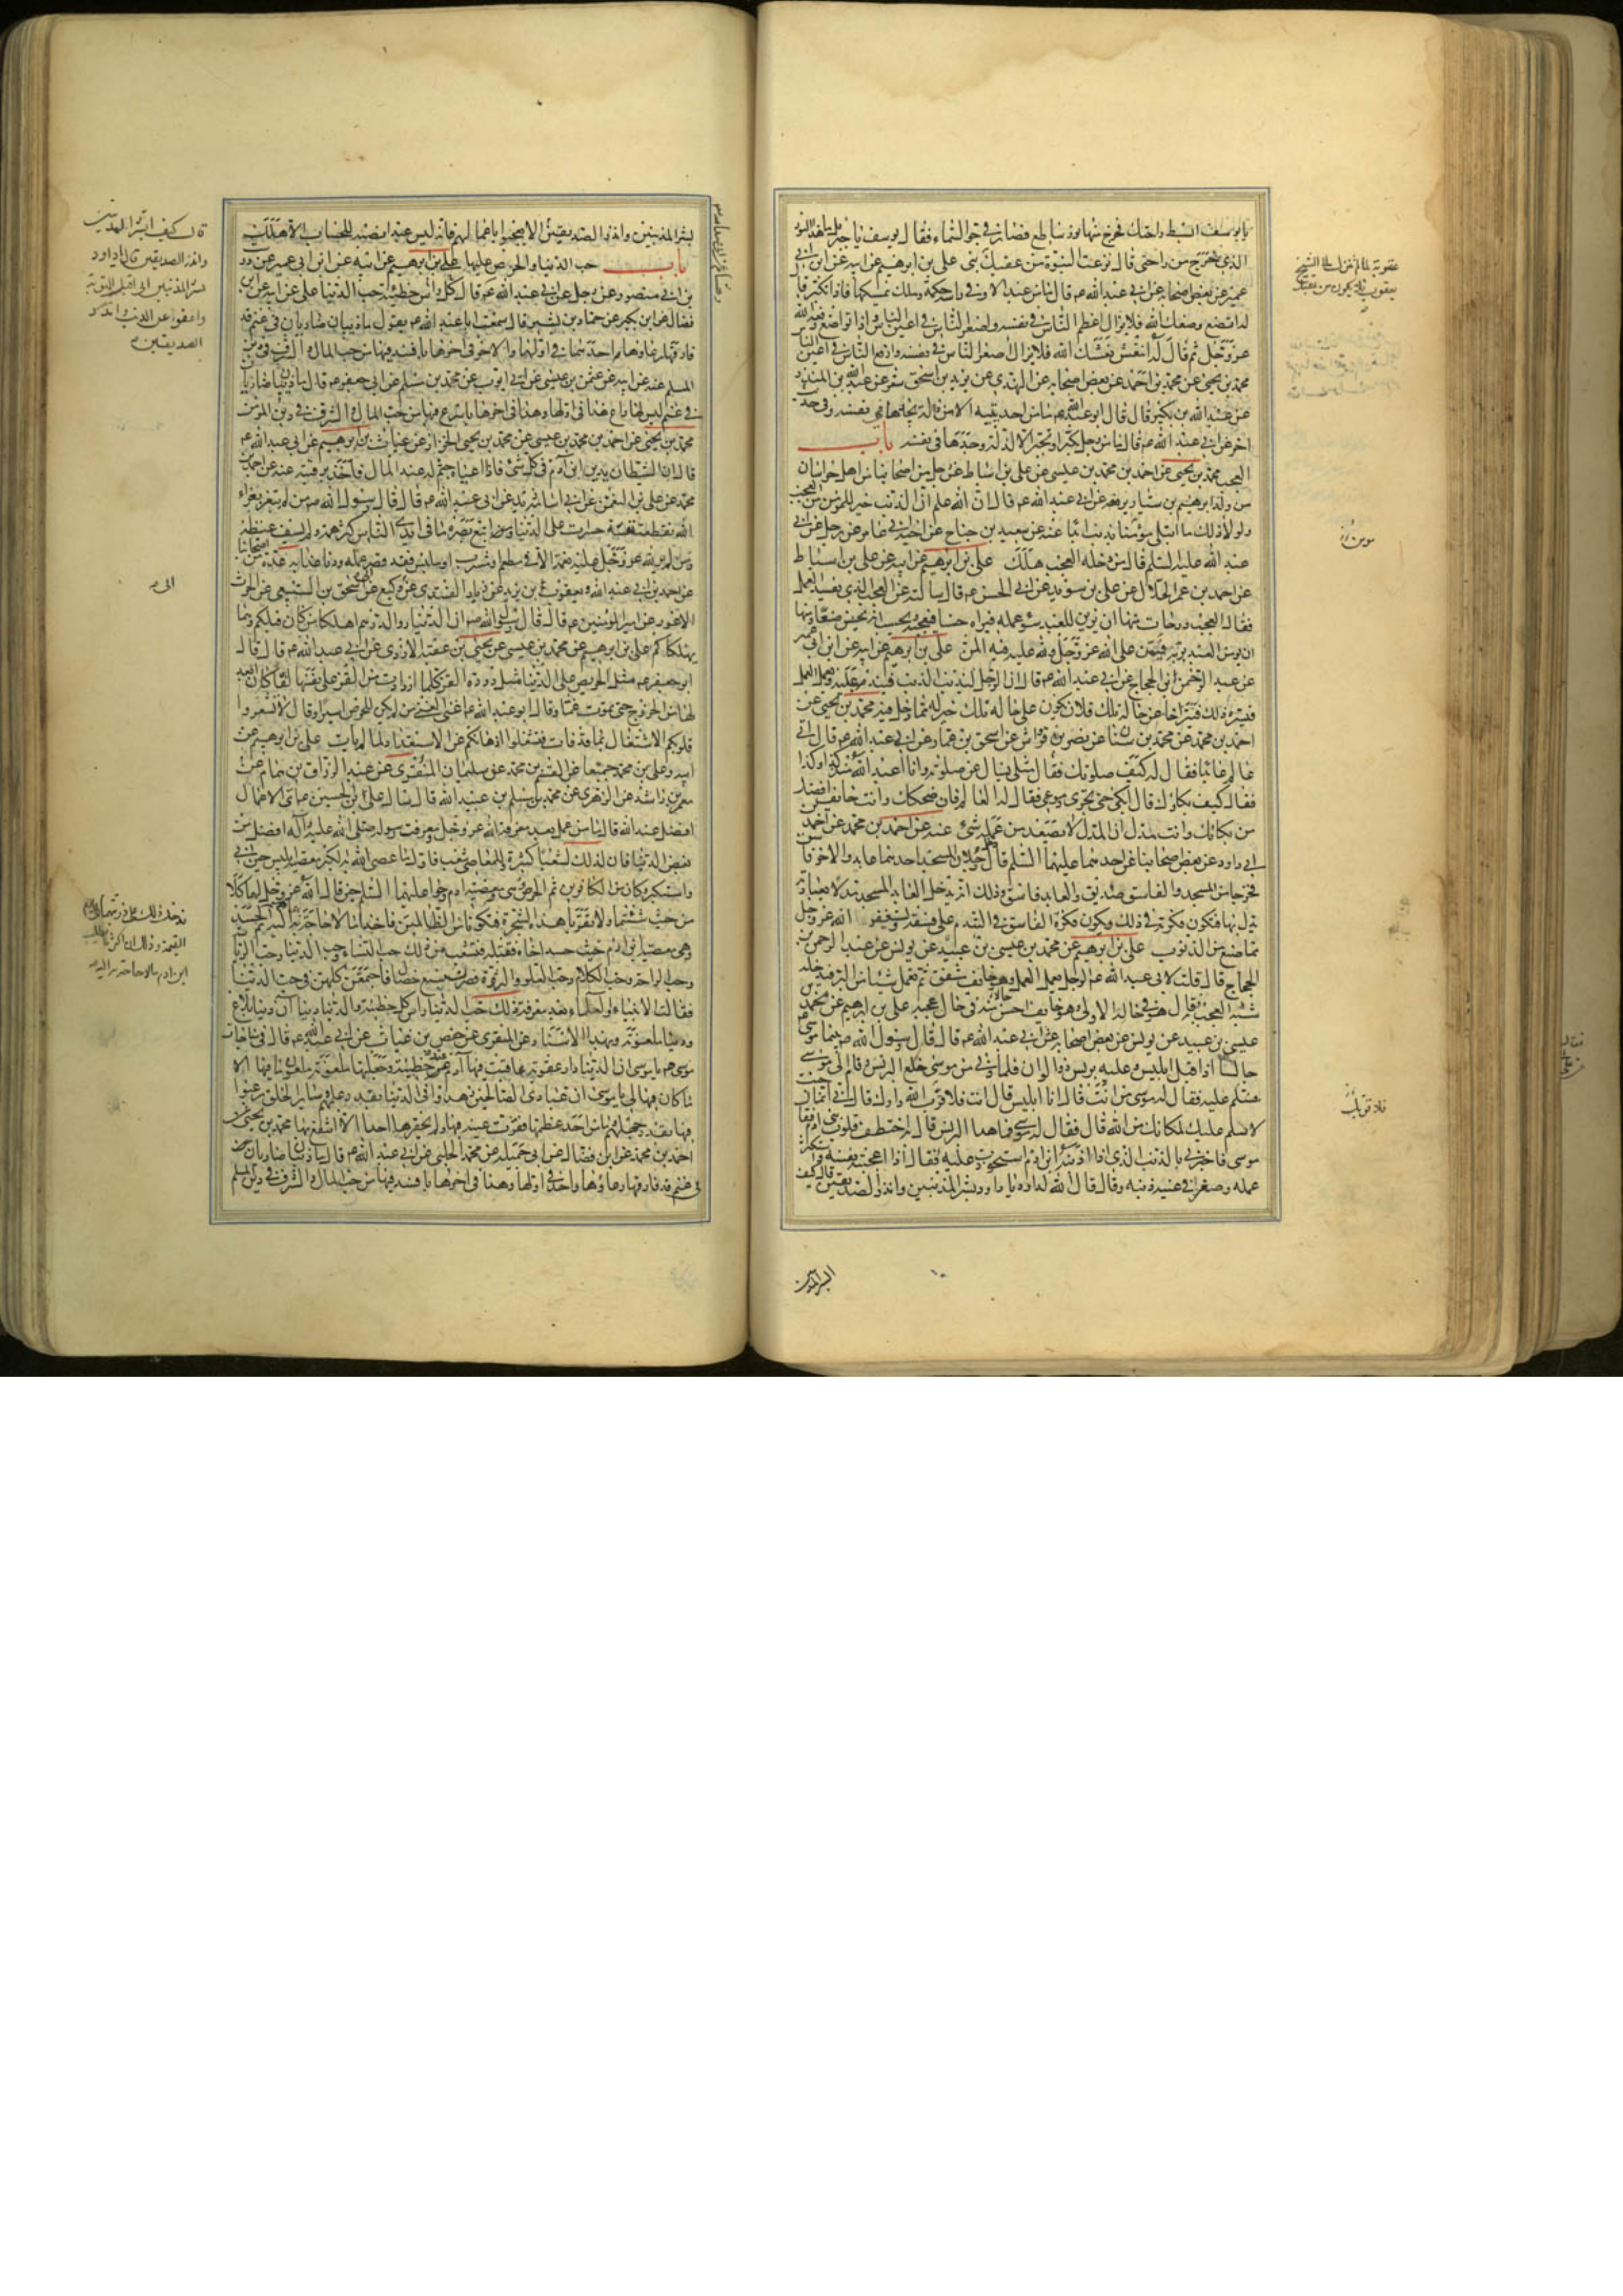 يا يوسف ابسط راحتك فخرج منها نور ساطع فصار في جو السماء فقال يوسف يا جبرئيل ما هذا النور
الذي خرج من راحتي قال نزعت النبوة من عقبك علي بن ابرهيم عن ابيه عن ابن ابي
عمير عن بعض اصحابه عن ابي عبد الله ع قال ما من عبد الا وفي راسه حكمة وملك يمسكها فاذا تكبر قال
له اتضع وضعك الله فلا يزال اعظم الناس في نفسه واصغر الناس في اعين الناس واذا تواضع رفعه الله
عز وجل ثم قال له انتعش نعشك الله فلا يزال اصغر الناس في نفسه وارفع الناس في اعين الناس
محمد بن يحيى عن محمد بن احمد عن بعض اصحابه عن النهدي عن يزيد بن اسحق شعر عن عبد الله بن المنذر
عن عبد الله بن بكير قال قال ابو عبد الله ع ما من احد يتيه الا من ذلة يجدها في نفسه وفي حديث
اخر عن ابي عبد الله ع قال ما من رجل تكبر او تجبر الا لذلة وجدها في نفسه باب
العجب محمد بن يحيى عن احمد بن محمد بن عيسى عن علي بن اسباط عن رجل من اصحابنا من اهل خراسان
من ولد ابرهيم بن سيار يرفعه عن ابي عبد الله ع قال ان الله علم ان الذنب خير للمؤمن من العجب
ولولا ذلك ما ابتلي مؤمنا بذنب ابدا عنه عن سعيد بن جناح عن اخيه ابي عامر عن رجل عن ابي
عبد الله عليه السلم قال من دخله العجب هلك علي بن ابرهيم عن ابيه عن علي بن اسباط
عن احمد بن عمر الحلال عن علي بن سويد عن ابي الحسن ع قال سالته عن العجب الذي يفسد العمل
فقال العجب درجات منها ان يزين للعبد سوء عمله فيراه حسنا فيعجبه ويحسب انه يحسن صنعا ومنها
ان يؤمن العبد بربه فيمن على الله عز وجل ولله عليه فيه المن علي بن ابرهيم عن ابيه عن ابن ابي عمير
عن عبد الرحمن ابن الحجاج عن ابي عبد الله ع قال ان الرجل ليذنب الذنب فيندم عليه ويعمل العمل
فيسره ذلك فيتراخا عن حاله تلك فلان يكون على حاله تلك خير له مما دخل فيه محمد بن يحيى عن
احمد بن محمد عن محمد بن سنان عن نضر بن قرواش عن اسحق بن عمار عن ابي عبد الله ع قال اتى
عالم عابدا فقال له كيف صلوتك فقال مثلي يسال عن صلوته وانا اعبد الله منذ كذا وكذا
فقال كيف بكاؤك قال ابكي حتى تجري دموعي فقال له العالم فان ضحكك وانت خائف افضل
من بكائك وانت مدل ان المدل لا يصعد من عمله شئ عنه عن احمد بن محمد عن احمد بن
ابي داود عن بعض اصحابنا عن احدهما عليهما السلم قال دخل رجلان المسجد احدهما عابد والاخر فاسق
فخرجا من المسجد والفاسق صديق والعابد فاسق وذلك انه يدخل العابد المسجد مدلا بعبادته
يدل بها فتكون فكرته في ذلك ويكون فكرة الفاسق في التندم على فسقه ويستغفر الله عز وجل
مما صنع من الذنوب علي بن ابرهيم عن محمد بن عيسى بن عبيد عن يونس عن عبد الرحمن بن
الحجاج قال قلت لابي عبد الله ع الرجل يعمل العمل وهو خائف مشفق ثم يعمل شيئا من البر فيدخله
شبه العجب به فقال هو في حاله الاولى وهو خائف احسن حالا منه في حال عجبه علي بن ابرهيم عن محمد بن
عيسى بن عبيد عن يونس عن بعض اصحابه عن ابي عبد الله ع قال قال رسول الله ص بينما موسى
جالسا اذ اقبل ابليس وعليه برنس ذو الوان فلما دنى من موسى خلع البرنس وقام الى موسى
فسلم عليه فقال له موسى من انت قال انا ابليس قال انت فلا قرب الله دارك قال اني انما جئت
لاسلم عليك لمكانك من الله قال فقال له موسى فما هذا البرنس قال به اختطف قلوب بني ادم فقال
موسى فاخبرني بالذنب الذي اذا اذنبه ابن ادم استحوذت عليه فقال اذا اعجبته نفسه واستكثر
عمله وصغر في عينيه ذنبه وقال قال الله لداود يا داود بشر المذنبين وانذر الصديقين قال كيف
عقوبة لما لم تنزل الى الشيخ
يعقوب فلا يكون من عقبك
فلا قرب الله
بشر المذنبين وانذر الصديقين الا يعجبوا باعمالهم فانه ليس عبد انصبه للحساب الا هلك
باب حب الدنيا والحرص عليها علي بن ابرهيم عن ابيه عن ابن ابي عمير عن درست
بن ابي منصور عن رجل عن ابي عبد الله ع قال راس كل خطيئة حب الدنيا علي عن ابيه عن ابن
فضال عن ابن بكير عن حماد بن بشير قال سمعت ابا عبد الله ع يقول ما ذئبان ضاريان في غنم قد
فارقها رعاؤها واحد منهما في اولها والاخر في اخرها بافسد فيها من حب المال والشرف في دين
المسلم عنه عن ابيه عن عثمن بن عيسى عن ابي ايوب عن محمد بن مسلم عن ابي جعفر ع قال ما ذئبان ضاريان
في غنم ليس لها راع هذا في اولها وهذا في اخرها باسرع فيها من حب المال والشرف في دين المؤمن
محمد بن يحيى عن احمد بن محمد بن عيسى عن محمد بن يحيى الخزاز عن غياث بن ابرهيم عن ابي عبد الله ع
قال ان الشيطان يدير ابن ادم في كل شئ فاذا اعياه جثم له عند المال فاخذ برقبته عنه عن احمد بن
محمد عن علي بن النعمن عن ابي اسامة زيد عن ابي عبد الله ع قال قال رسول الله ص من لم يتعز بعزاء
الله تقطعت نفسه حسرات على الدنيا ومن اتبع بصره ما في ايدي الناس كثر همه ولم يشف غيظه
ومن لم ير لله عز وجل عليه نعمة الا في مطعم او مشرب او ملبس فقد قصر عمله ودنا عذابه عدة من اصحابنا
عن احمد بن ابي عبد الله عن يعقوب بن يزيد عن زياد القندي عن ابي وكيع عن ابي اسحق السبيعي عن الحرث
الاعور عن امير المؤمنين ع قال قال رسول الله ص ان الدنيار والدرهم اهلكا من كان قبلكم وهما
مهلكاكم علي بن ابرهيم عن محمد بن عيسى عن يحيى بن عقبة الازدي عن ابي عبد الله ع قال قال
ابو جعفر ع مثل الحريص على الدنيا مثل دودة القز كلما ازدادت من القز على نفسها لفا كان ابعد
لها من الخروج حتى تموت غما وقال ابو عبد الله ع اغنى الغنى من لم يكن للحرص اسيرا وقال لا تشعروا
قلوبكم الاشتغال بما قد فات فتشغلوا اذهانكم عن الاستعداد لما لم يات علي بن ابرهيم عن
ابيه وعلي بن محمد جميعا عن القسم بن محمد عن سليمان المنقري عن عبد الرزاق بن همام عن
معمر بن راشد عن الزهري عن محمد بن مسلم بن عبيد الله قال سئل علي بن الحسين ع اي الاعمال
افضل عند الله قال ما من عمل بعد معرفة الله عز وجل ومعرفة رسوله صلى الله عليه وآله افضل من
بغض الدنيا فان لذلك لشعبا كثيرة وللمعاصي شعب فاول ما عصي الله به الكبر معصية ابليس حين ابى
واستكبر وكان من الكافرين ثم الحرص وهي معصية ادم وحوا عليهما السلم حين قال الله عز وجل لهما كلا
من حيث شئتما ولا تقربا هذه الشجرة فتكونا من الظالمين فاخذا ما لا حاجة بهما اليه ثم الحسد
وهي معصية ابن ادم حيث حسد اخاه فقتله فتشعب من ذلك حب النساء وحب الدنيا وحب الرياسة
وحب الراحة وحب الكلام وحب العلو والثروة فصرن سبع خصال فاجتمعن كلهن في حب الدنيا
فقالت الانبياء والعلماء بعد معرفة ذلك حب الدنيا راس كل خطيئة والدنيا دنيا ان دنيا بلاغ
ودنيا ملعونة وبهذا الاسناد عن المنقري عن حفص بن غياث عن ابي عبد الله ع قال في مناجات
موسى ع يا موسى ان الدنيا دار عقوبة عاقبت فيها آدم عند خطيئته وجعلتها ملعونة ملعون ما فيها الا
ما كان فيها لي يا موسى ان عبادي الصالحين زهدوا في الدنيا بقدر علمهم وساير الخلق رغبوا
فيها بقدر جهلهم وما من احد عظمها فقرت عينه فيها ولم يحقرها احد الا انتفع بها محمد بن يحيى عن
احمد بن محمد عن ابن فضال عن ابي جميلة عن محمد الحلبي عن ابي عبد الله ع قال ما ذئبان ضاريان
في غنم قد فارقها رعاؤها واحد في اولها وهذا في اخرها بافسد فيها من حب المال والشرف في دين المسلم
قال كيف ابشر المذنبين
وانذر الصديقين قال يا داود
بشر المذنبين اني اقبل التوبة
واعفو عن الذنب وانذر
الصديقين